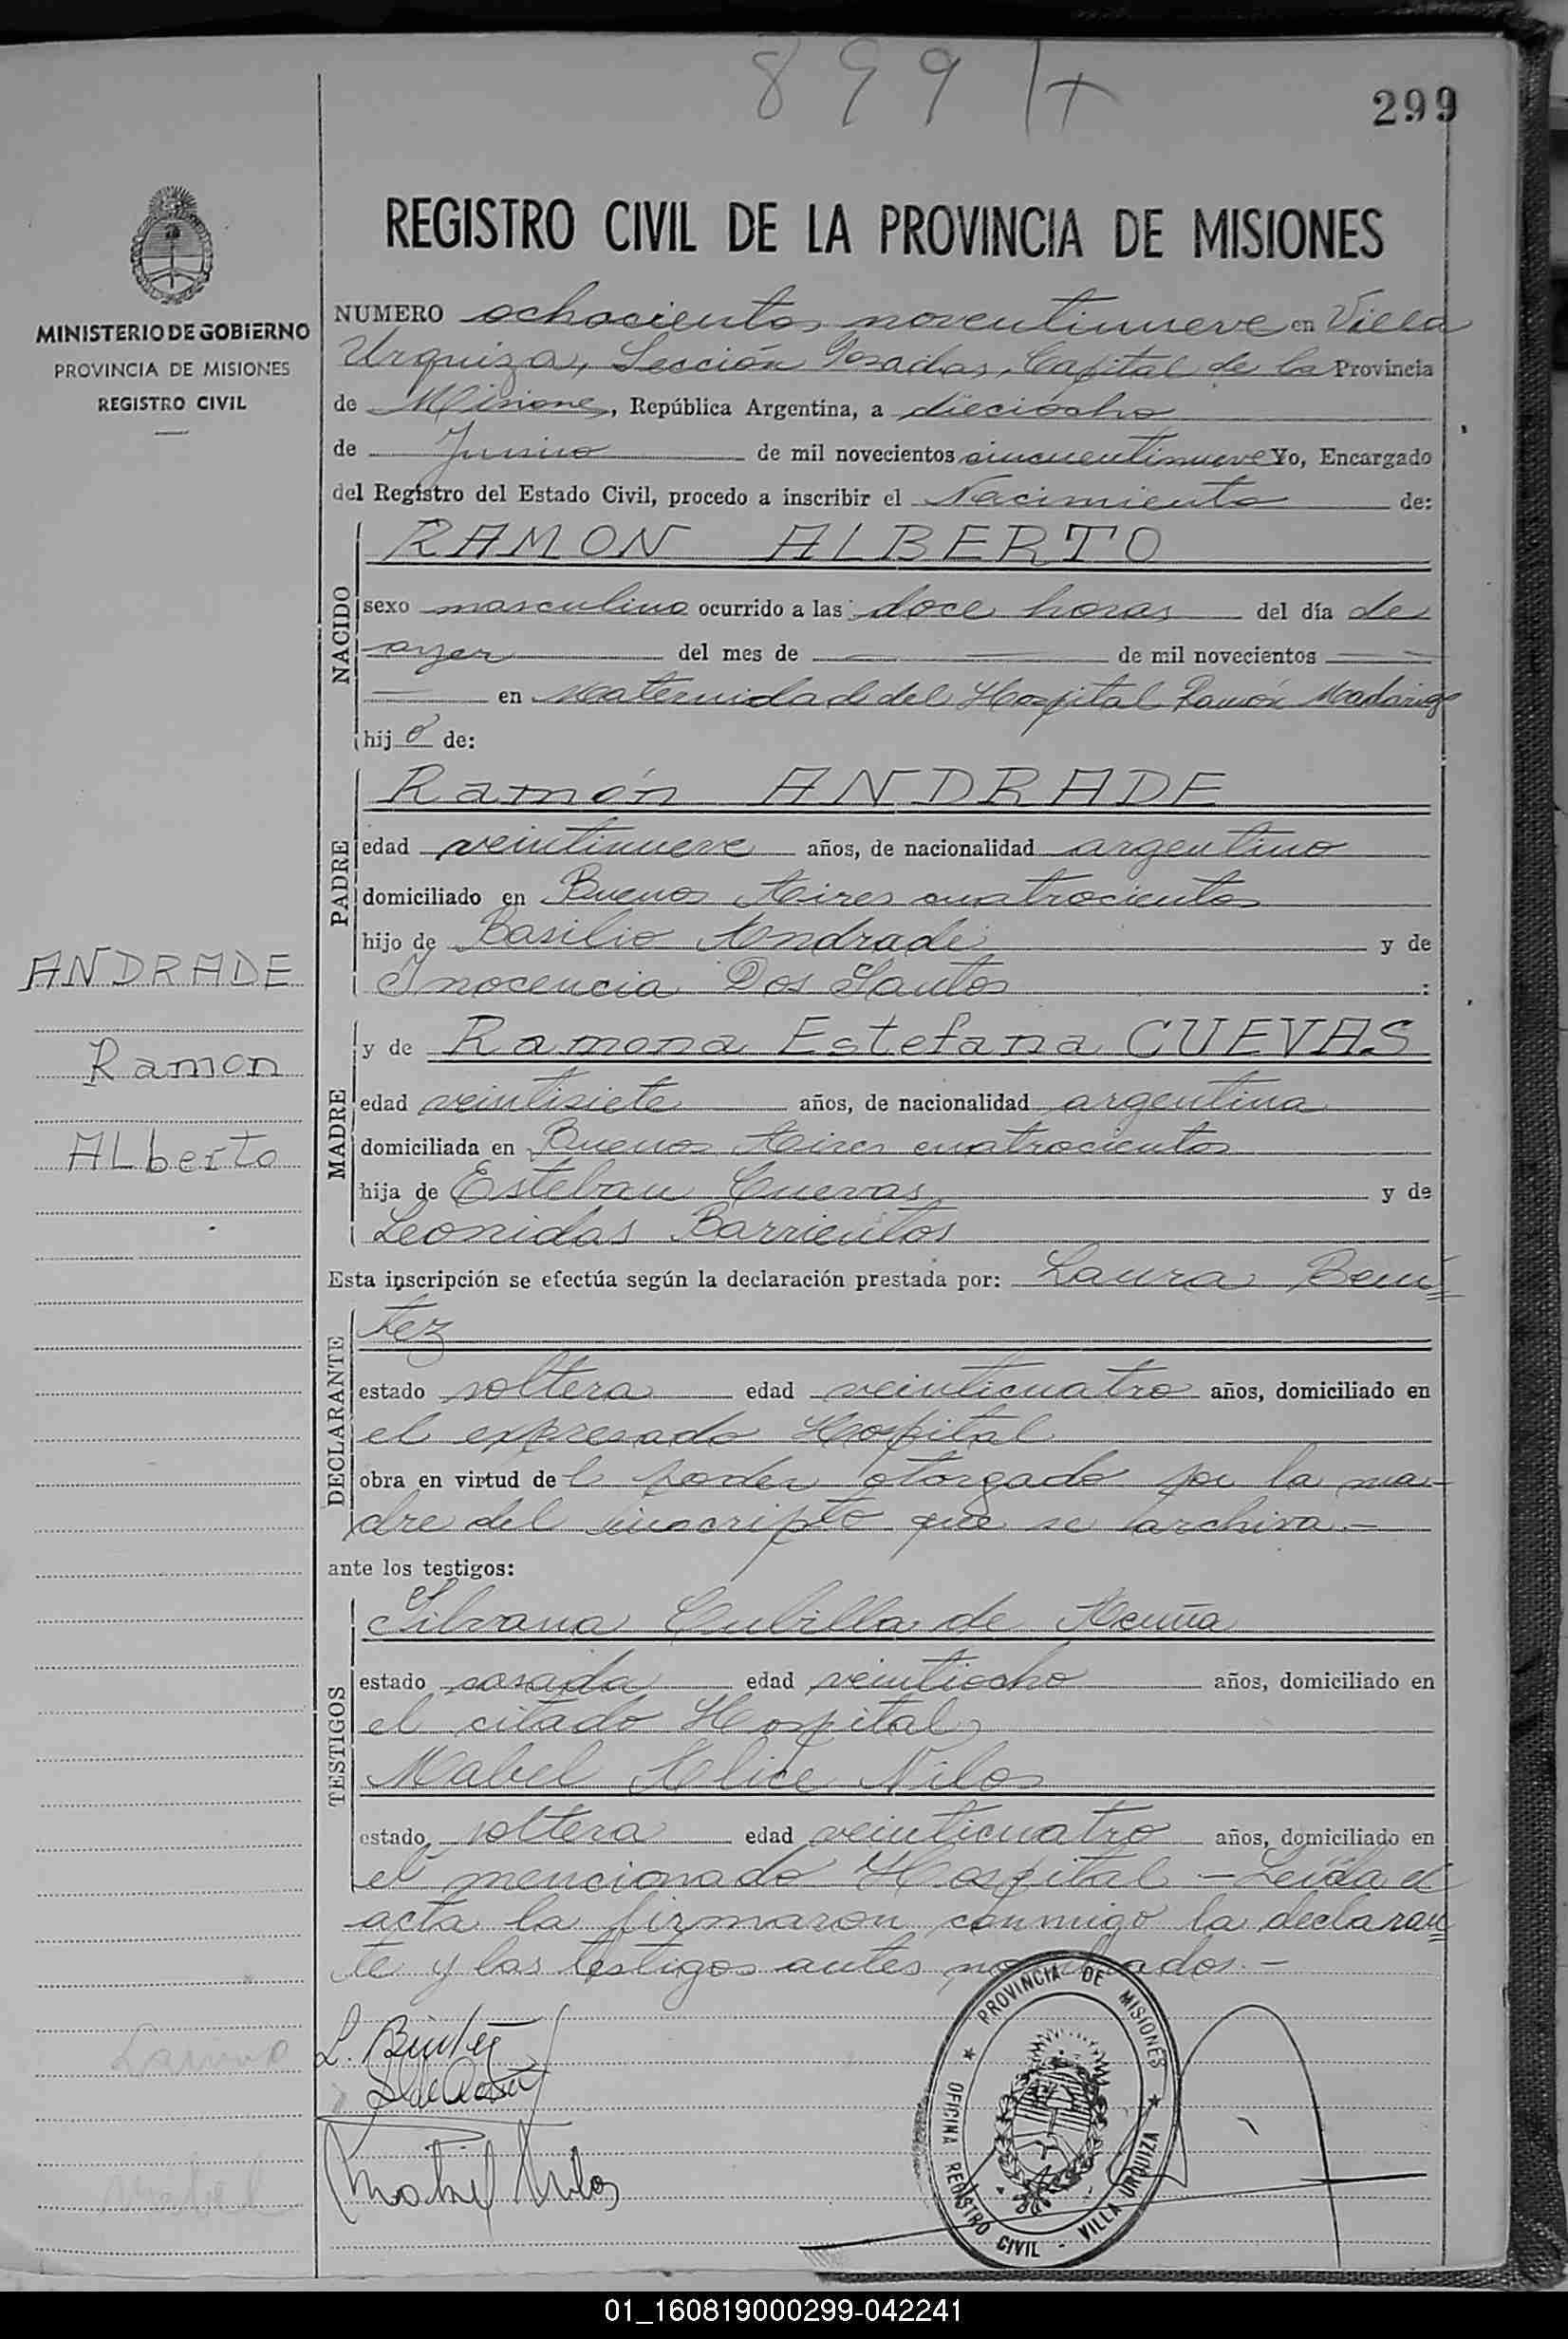 899
299
REGISTRO CIVIL DE LA PROVINCIA DE MISIONES
MINISTERIO DE GOBIERNO
PROVINCIA DE MISIONES
REGISTRO CIVIL
NUMERO ochocientos noventinueve en Villa
Urquiza, Sección Posadas, Capital de la Provincia
de Misiones, República Argentina, a dieciocho
de Junio de mil novecientos cincuentinueve Yo, Encargado
del Registro del Estado Civil, procedo a inscribir el Nacimiento de:
NACIDO
RAMON ALBERTO
sexo masculino ocurrido a las doce horas del día de
ayer del mes de — — de mil novecientos — —
— en Maternidad del Hospital Ramón Madariag
hijo de:
PADRE
Ramón ANDRADE
edad veintinueve años, de nacionalidad argentino
domiciliado en Buenos Aires cuatrocientos
hijo de Basilio Andrade y de
Inocencia Dos Santos :
MADRE
y de Ramona Estefana CUEVAS
edad veintisiete años, de nacionalidad argentina
domiciliada en Buenos Aires cuatrocientos
hija de Esteban Cuevas y de
Leonidas Barrientos
ANDRADE
Ramon
ALberto
Esta inscripción se efectúa según la declaración prestada por: Laura Bení=
tez
DECLARANTE
estado soltera edad veinticuatro años, domiciliado en
el expresado Hospital
obra en virtud del poder otorgado por la ma-
dre del inscripto que se archiva.-
ante los testigos:
TESTIGOS
Silvana Cubilla de Acuña
estado casada edad veintiocho años, domiciliado en
el citado Hospital
Mabel Alice Nilos
estado soltera edad veinticuatro años, domiciliado en
el mencionado Hospital - Leída el
acta la firmaron conmigo la declaran=
te y los testigos antes nombrados.-
L. Benítez
S. de Acuña
Mabel Nilos
Laura
Mabel
PROVINCIA DE MISIONES
OFICINA REGISTRO CIVIL - VILLA URQUIZA
01_160819000299-042241